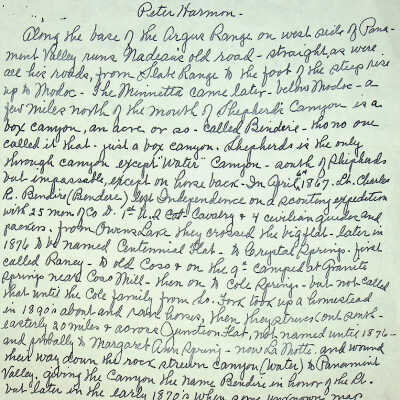 Peter Harmon -
Along the base of the Argus Range on west side of Pana-
ment Valley runs Nadeau's old road - straight, as were
all his roads, from Slate Range to the foot of the steep rise
up to Modoc - The Minnietta came later - below Modoc - a
few miles north of the mouth of Shepherds Canyon is a
box canyon, an acre or so - called Bendire - tho no one
called it that - just a box canyon. Shepherds is the only
through canyon except "Water" Canyon - south of Shepherds
but impassable, except on horse back - In April 6th 1867 - Lt. Charles
R. Bendire (Bendere) left Independence on a scouting expedition
with 25 men of Co D. 1st U.S. Cavalry & 4 civilian guides and
packers. from Owens Lake they crossed the big flat - later in
1876 to be named Centennial Flat - to Crystal Springs. first
called Raney - to old Coso & on the 9th camped at Granite
Springs near Coso Mill - then on to Cole Springs - but not called
that until the Cole family from So. Fork took up a homestead
in 1890's about and raise horses, then they struck out south-
easterly 20 miles & across Junction Flat, not named until 1876 -
and probably to Margaret Ann Spring - now La Motte. and wound
their way down the rock strewn canyon (Water) to Panamint
Valley, giving the Canyon the name Bendire in honor of the Lt.
but later in the early 1870's when some unknown map